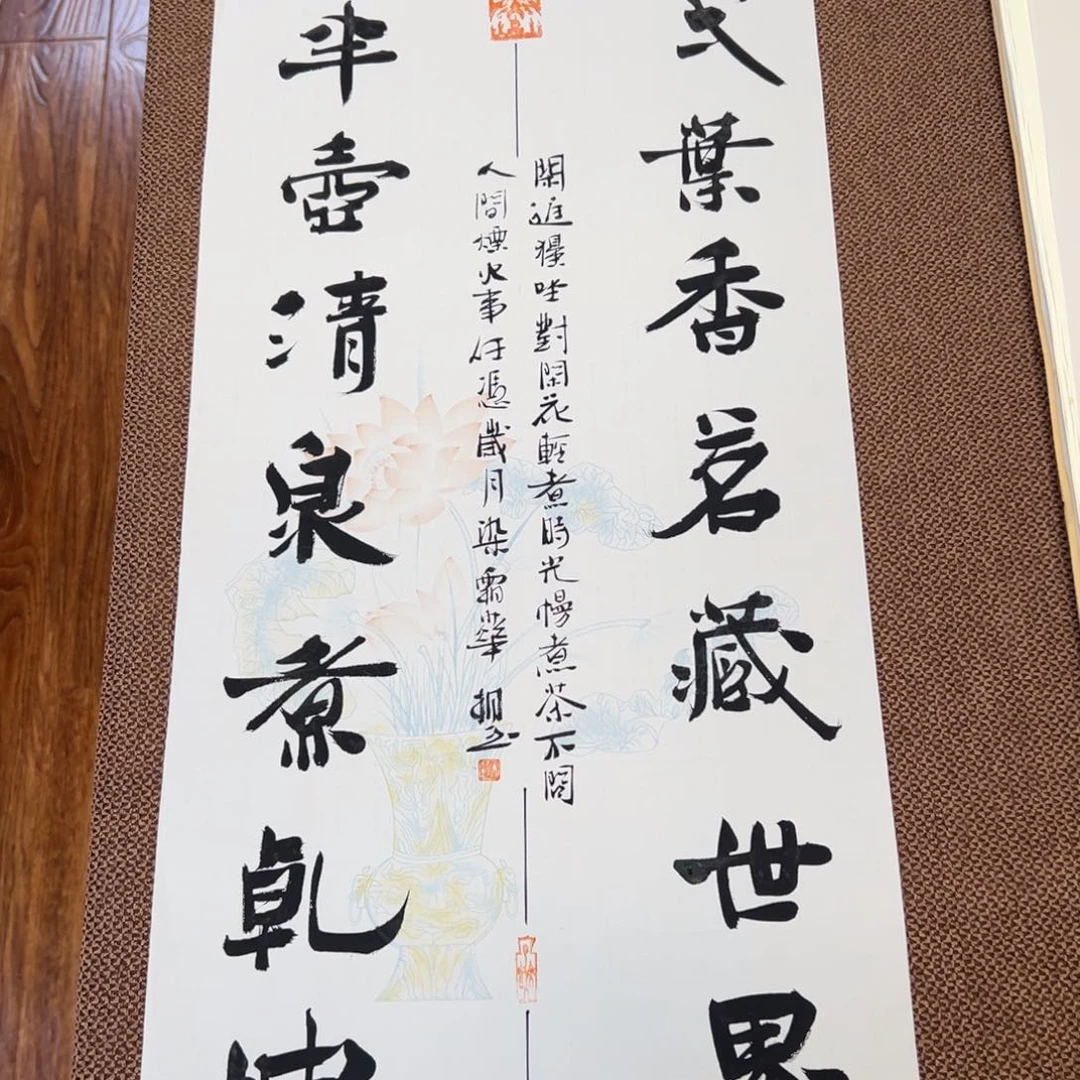 葉香茗藏世界
閑庭獨坐對閑花輕煮時光慢煮茶不問
人間煙火事任憑歲月染霜華
半壺清泉煮乾坤